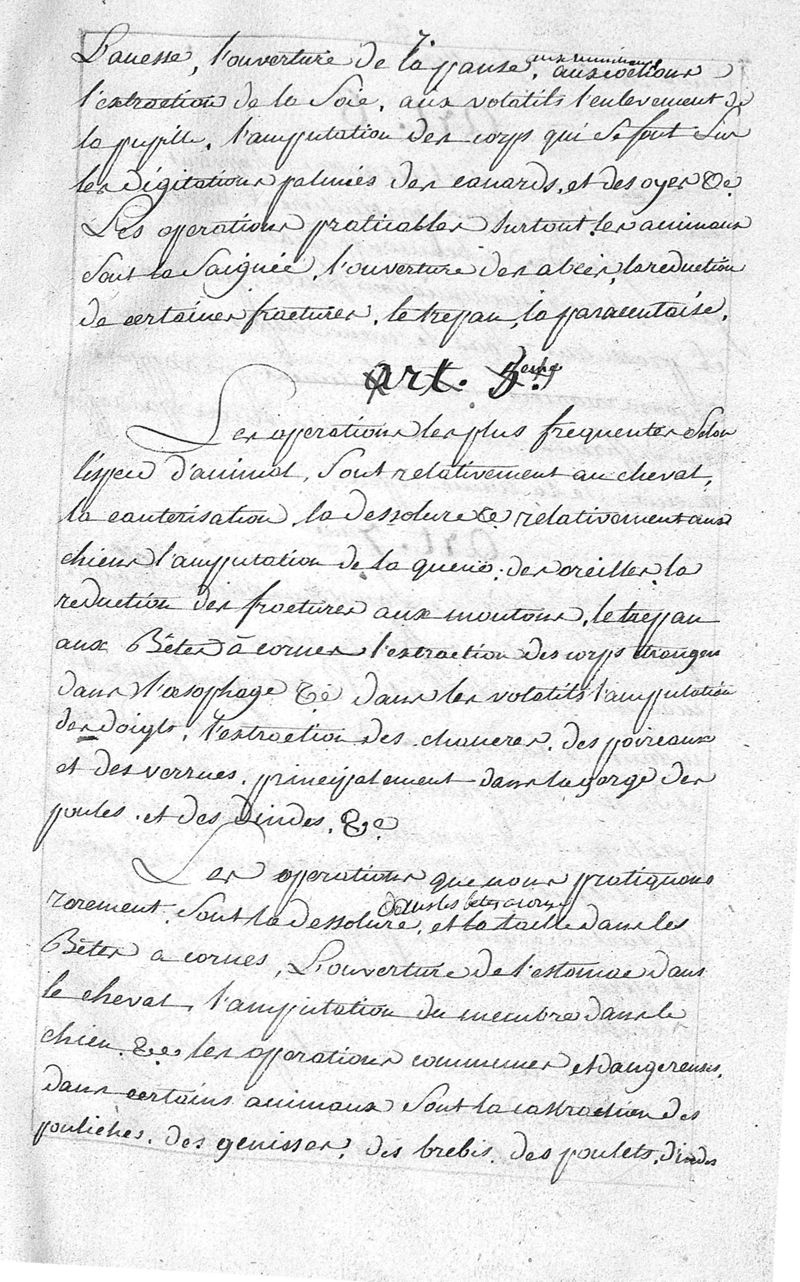 7.
L'anesse, l'ouverture de la panse, aux ruminans, aux cochons
l'extraction de la Soie, aux volatils l'enlevement de
la pupille, l'amputation des corps qui se font sur
les digitations palmées des canards, et des oyes &c
Les operations praticables surtout les animaux
Sont la Saignée, l'ouverture des abcès, la reduction
de certaines fractures, le trepan, la paracentaise,
art. 5.eme
Les operations les plus frequentes Selon
l'espece d'animal, Sont relativement au cheval,
la cauterisation, la dessolure &c relativement aux
chiens l'amputation de la queüe, des oreilles, la
reduction des fractures aux moutons, le trepan
aux Bêtes à cornes l'extraction des corps etrangers
dans l'œsophage &c dans les volatils l'amputation
des doigts, l'extraction des chancres, des poireaux
et des verrues, principalement dans la gorge des
poules, et des Dindes, &c
Les operations que nous pratiquons
rarement, Sont la dessolure, dans les betes a cornes et la taille dans les
Bêtes a cornes, L'ouverture de l'estomac dans
le cheval, l'amputation du membre dans le
chien, &c, les operations communes et dangereuses,
dans certains animaux Sont la castraction des
pouliches, des genisses, des brebis, des poulets, dindes